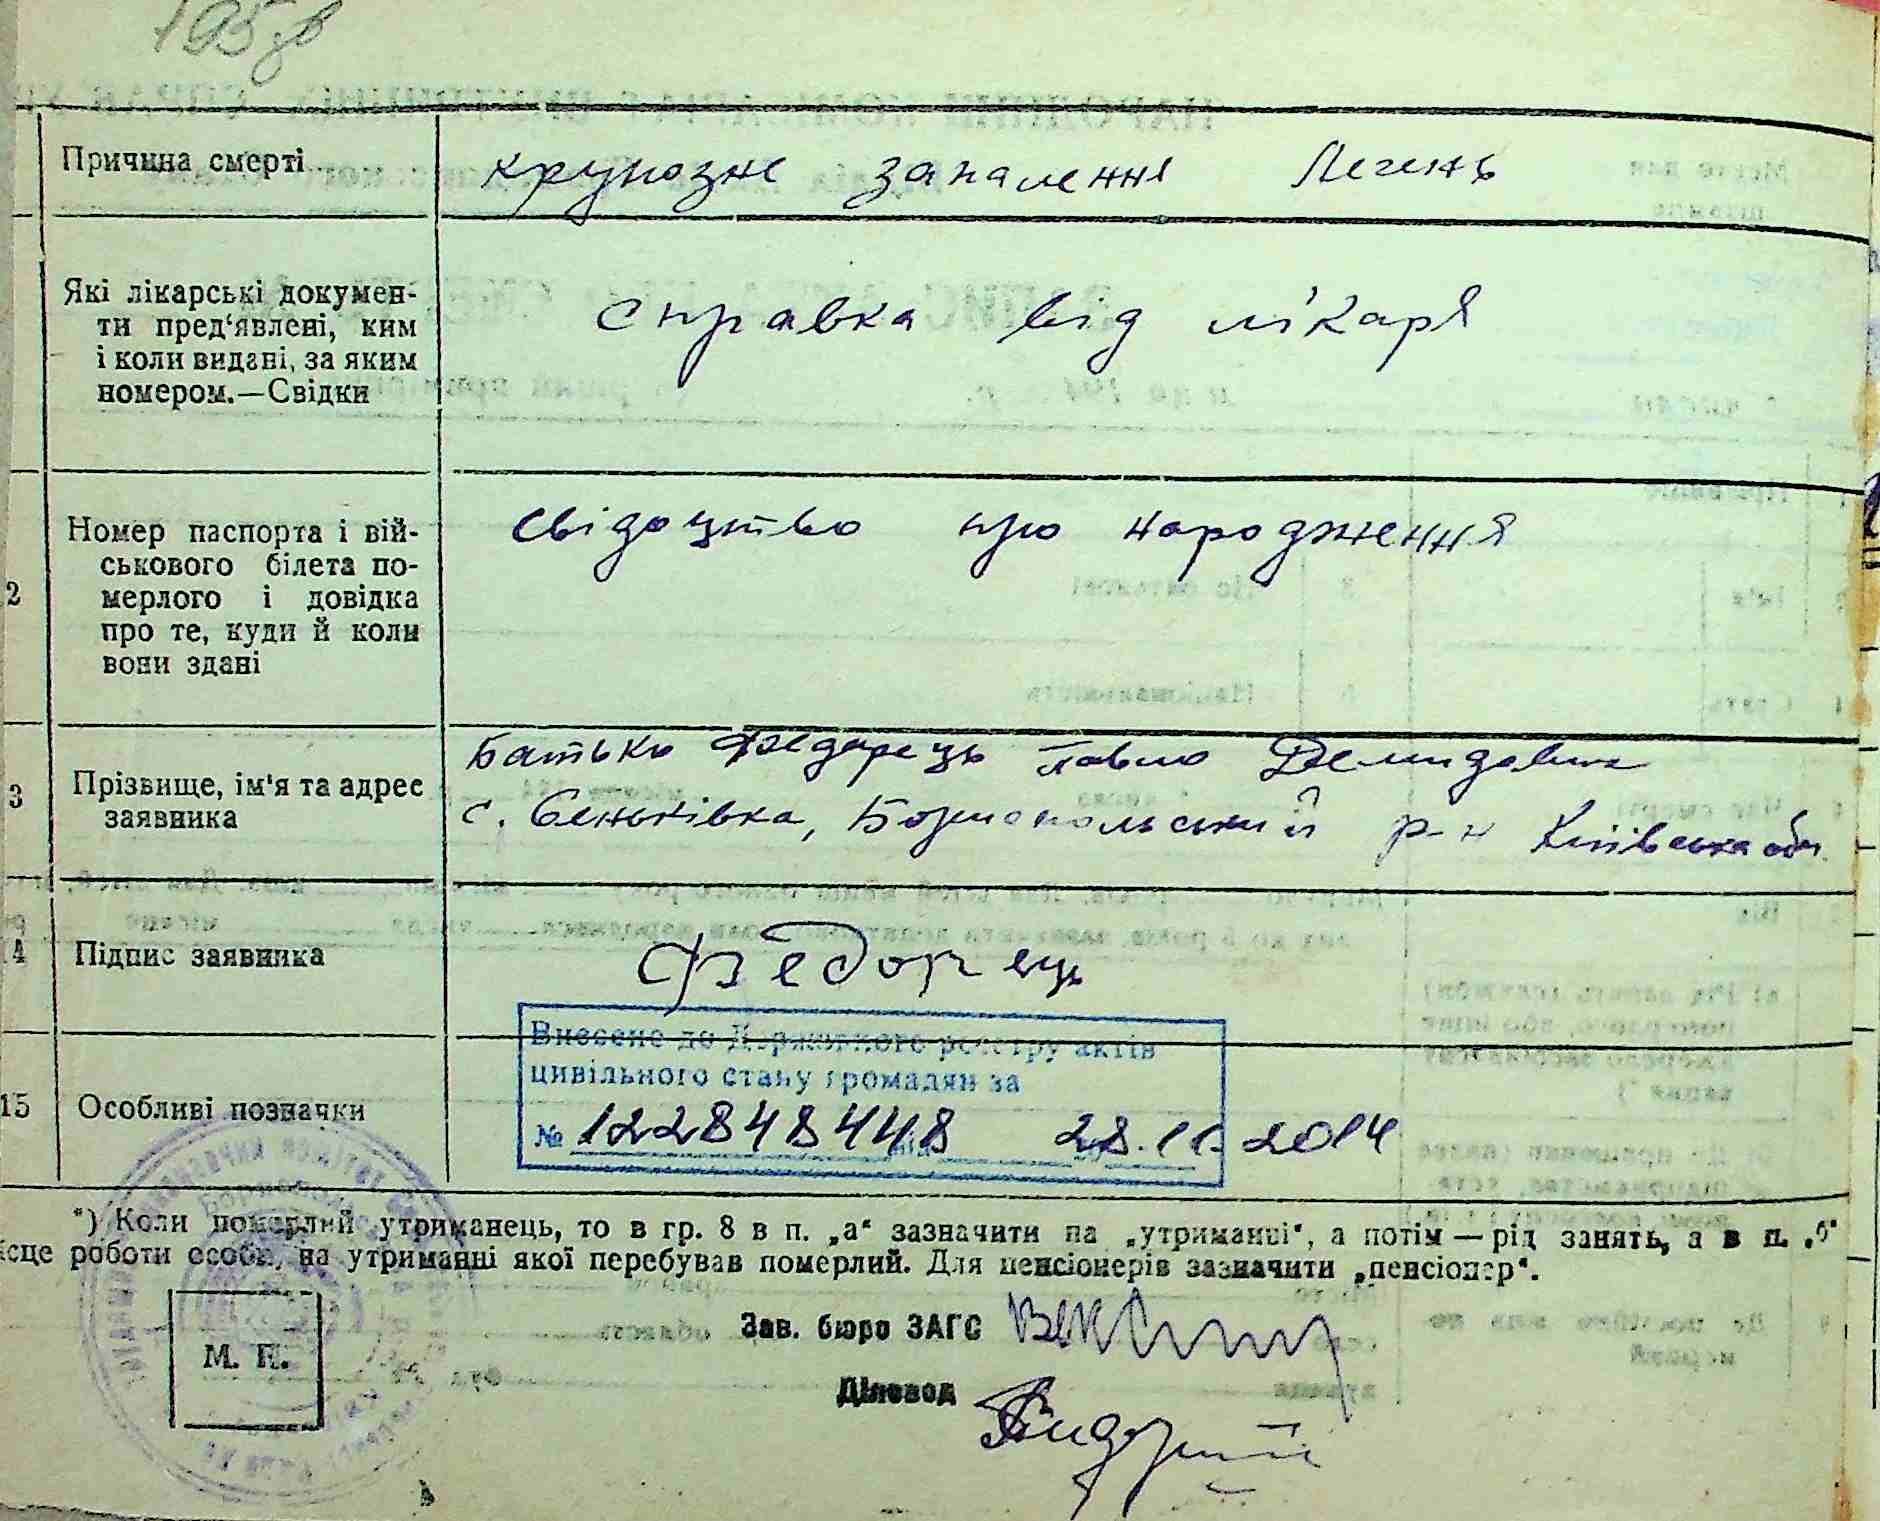 195 зв
Причина смерті
крупозне запалення Легень
Які лікарські докумен-
ти пред‘явлені, ким
і коли видані, за яким
номером.—Свідки
справка від лікаря
2
Номер паспорта і вій-
ськового білета по-
мерлого і довідка
про те, куди й коли
вони здані
свідоцтво про народження
3
Прізвище, ім'я та адрес
заявника
Батько Федарець Павло Демидович
с. Сеньківка, Бориспольський р-н Київська обл.
14
Підпис заявника
Федорець
15
Особливі позначки
Внесено до Державного реєстру актів
цивільного стану громадян за
№ 122848448 від 28.11.2014
*) Коли померлий утриманець, то в гр. 8 в п. „а“ зазначити на „утриманні“, а потім — рід занять, а в п. „б“
ісце роботи особи, на утриманні якої перебував померлий. Для пенсіонерів зазначити „пенсіонер“.
М. П.
Зав. бюро ЗАГС
Діловод